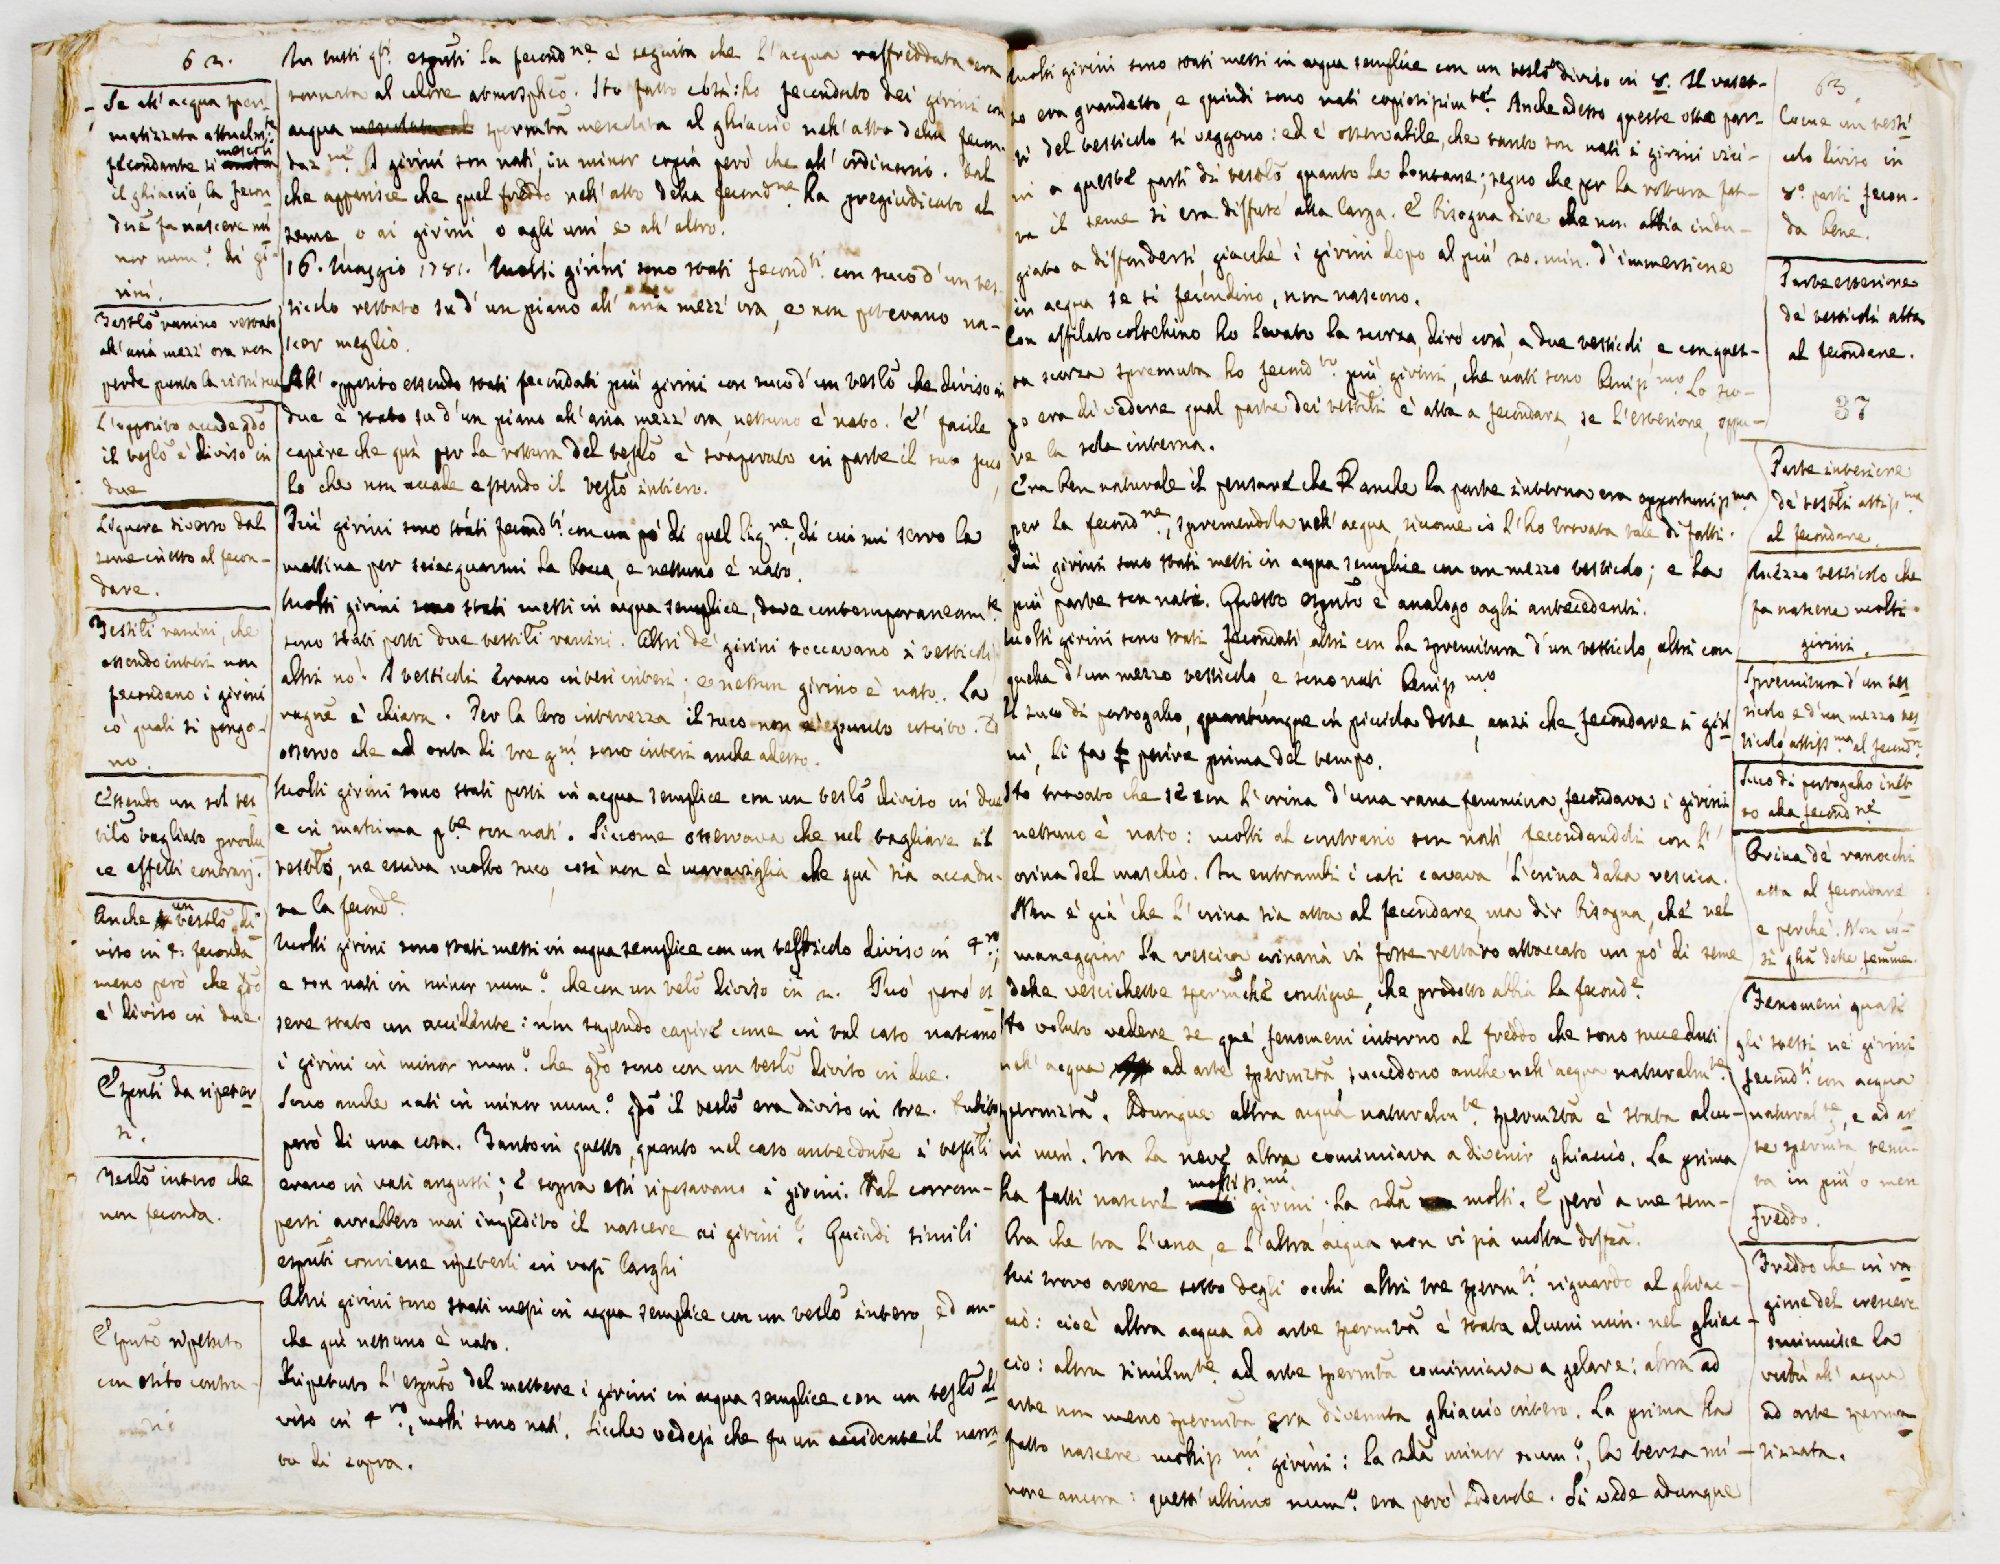 62.
Se all'acqua sper-
matizzata attualm.te
fecondante si mescoli
il ghiaccio, la fecon
duẽ fa nascere mi
nor num.o di gi-
rini.
Testlõ ranino restato
all'aria mezz'ora non
perde punto la virtù
L'opposito accade qdõ
il testlõ è diviso in
due
Liquore diverso dal
seme inetto al fecon-
dare.
Testili ranini, che
essendo interi non
fecondano i girini
cò quali si pongo-
no.
Essendo un sol tes
tilõ tagliato produ
ce effetti contrarj.
Anche un testlõ di
viso in 4. feconda
meno però che qdõ
è diviso in due.
Esp̃nti da ripeter
si.
Testlõ intero che
non feconda.
Esp̃nto ripetuto
con esito contra-
rio
In tutti q.ti esp̃nti la fecond.ne è seguita che l'acqua raffreddata era
tornata al calore atmosphcõ. Ho fatto così: ho fecondato dei girini con
acqua spermatã mescolata al ghiaccio nell'atto della fecon
daz.ne I girini son nati, in minor copia però che all'ordinario. Dal
che apparisce che quel freddo nell'atto della fecond.ne ha pregiudicato al
seme, o ai girini, o agli uni e all'altro.
16. Maggio 1781. Molti girini sono stati fecond.ti con suco d'un tes
ticolo restato su d'un piano all'aria mezz'ora, e non potevano na-
scer meglio.
All'opposito essendo stati fecondati più girini con suco d'un testlõ che diviso in
due è stato su d'un piano all'aria mezz'ora, nessuno è nato. E' facile
capire che quì per la rottura del testlõ è svaporato in parte il suo suco
lo che non accade essendo il testlõ intiero.
Più girini sono stati fecond.ti con un pò di quel liq.re, di cui mi servo la
mattina per sciacquarmi la bocca, e nessuno è nato.
Molti girini sono stati messi in acqua semplice, dove contemporaneam.te
sono stati posti due testili ranini. Altri de' girini toccavano i testicoli
altri nò. I testicoli erano interi interi; e nessun girino è nato. La
ragnẽ è chiara. Per la loro interezza il suco non è punto uscito. Ed
osservo che ad onta di tre g.ni sono interi anche adesso.
Molti girini sono stati posti in acqua semplice con un testlõ diviso in due
e in massima p.te son nati. Siccome osservava che nel tagliare il
testlõ, ne esciva molto suco, così non è maraviglia che quì sia accadu-
ta la fecond.e
Molti girini sono stati messi in acqua semplice con un testicolo diviso in 4.ro,
e son nati in minor num.o, che con un testlõ diviso in 2. Può però es
sere stato un accidente: non sapendo capire come in tal caso nascano
i girini in minor num.o che qdõ sono con un testlõ diviso in due.
Sono anche nati in minor num.o qdõ il testlõ era diviso in tre. Dubito
però di una cosa. Tanto in questo, quanto nel caso antecedẽte i testili
erano in vasi angusti; e sopra essi riposavano i girini. Dal corrom-
persi avrebbero mai impedito il nascere ai girini? Quindi simili
esp̃nti conviene ripeterli in vasi larghi
Altri girini sono stati messi in acqua semplice con un testlõ intero, ed an-
che quì nessuno è nato.
Ripetuto l'esp̃nto del mettere i girini in acqua semplice con un testlõ di
viso in 4.ro, molti sono nati. Sicche vedesi che fu un accidente il narra
to di sopra.
63.
Molti girini sono stati messi in acqua semplice con un testlõ diviso in 8. Il vaset-
to era grandetto, e quindi sono nati copiosissim.te Anche adesso queste otto par-
ti del testicolo si veggono: ed è osservabile, che tanto son nati i girini vici-
ni a queste parti di testlõ, quanto le lontane; segno che per la rottura fat-
ta il seme si era diffuso alla larga. E bisogna dire che non abbia indu-
giato a diffondersi, giacchè i girini dopo al più 20. min. d'immersione
in acqua se si fecondino, non nascono.
Con affilato coltellino ho levato la scorza, dirò così, a due testicoli, e con ques-
ta scorza spremuta ho fecond.to più girini, che nati sono beniss.mo Lo sco-
po era di vedere qual parte dei testili è atta a fecondare, se l'esteriore, oppu-
re la sola interna.
Era ben naturale il pensare che anche la parte interna era opportuniss.ma
per la fecond.ne, spremendola nell'acqua, siccome io l'ho trovata tale di fatti.
Più girini sono stati messi in acqua semplice con un mezzo testicolo; e la
più parte son nati. Questo esp̃nto è analogo agli antecedenti.
Molti girini sono stati fecondati, altri con la spremitura d'un testicolo, altri con
quella d'un mezzo testicolo, e sono nati beniss.mo
Il suco di portogallo, quantunque in piccola dose, anzi che fecondare i giri
ni, li fa perire prima del tempo.
Ho trovato che se con l'orina d'una rana femmina fecondava i girini
nessuno è nato: molti al contrario son nati, fecondandoli con l'
orina del maschio. In entrambi i casi cavava l'orina dalla vescica.
Non è già che l'orina sia atta al fecondare, ma dir bisogna, che nel
maneggiar la vescica orinaria vi fosse restato attaccato un pò di seme
delle vescichette spermchẽ contigue, che prodotto abbia la fecond.e
Ho voluto vedere se que' fenomeni intorno al freddo che sono succeduti
nell'acqua ad arte spermztã succedono anche nell'acqua naturalm.te
spermztã. Adunque altra acqua naturalm.te spermztã è stata alcu-
ni min. tra la neve altra cominciava a divenir ghiaccio. La prima
ha fatti nascere moltiss.mi girini: la 2dã molti. E però a me sem-
bra che tra l'una, e l'altra acqua non vi sia molta diffzã.
Mi trovo avere sotto degli occhi altri tre sperm.ti riguardo al ghiac-
cio: cioè altra acqua ad arte spermtã è stata alcuni min. nel ghiac-
cio: altra similm.te ad arte spermtã cominciava a gelare: altra ad
arte non meno spermtã era divenuta ghiaccio intero. La prima ha
fatto nascere moltiss.mi girini: la 2dã minor num.o, la terza mi-
nore ancora: quest'ultimo num.o era però lodevole. Si vede adunque
Come un testi
colo diviso in
8.o parti fecon-
da bene.
Parte esteriore
de' testicoli atta
al fecondare.
37
Parte interiore
de' testili attiss.ma
al fecondare.
Mezzo testicolo che
fa nascere molti
girini.
Spremitura d'un tes
ticolo, e d'un mezzo tes
ticolo, attiss.ma al fecond.re
Suco di portogallo inet-
to alla fecond.ne
Orina de' ranocchi
atta al fecondare
e perchè. Non co-
sì qlla delle femme.
Fenomeni quasi
gli stessi ne' girini
fecond.ti con acqua
natural.te, e ad ar
te spermta tenu-
ta in più o men
freddo.
Freddo che in ra
gione del crescere
sminuisce la
virtù all'acqua
ad arte sperma
tizzata.